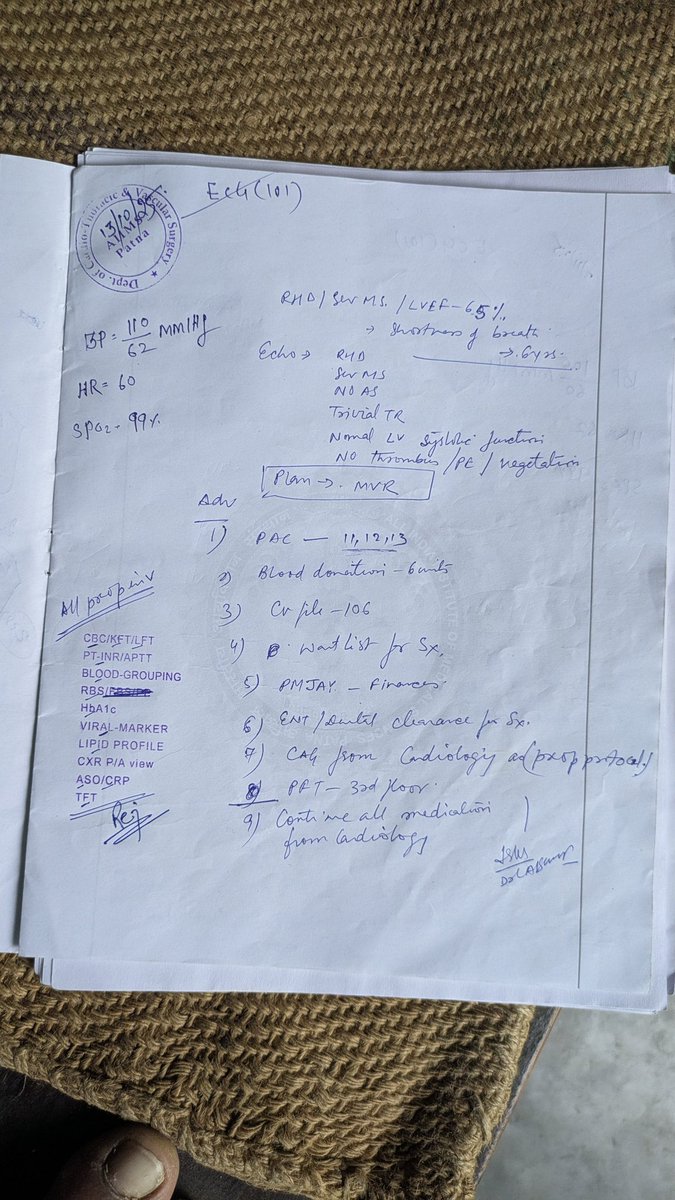 ECG (101)
Dept. of Cardio-Thoracic & Vascular Surgery
13/10/25
AIIMS
Patna
RHD / Sev MS. / LVEF - 65%
→ Shortness of breath
→ 6 yrs.
BP = 110/62 MM/Hg
HR = 60
SPO2 - 99%
Echo → RHD
Sev MS
NO AS
Trivial TR
Normal LV systolic function
NO thrombus / PE / vegetation
Plan → MVR
Adv
1) PAC — 11, 12, 13
2) Blood donation - 6 units
3) CV file - 106
4) Wait list for Sx.
5) PMJAY - Finances
6) ENT / Dental clearance for Sx.
7) CAG from Cardiology (preop protocol)
8) PFT - 3rd floor
9) Continue all medication
from Cardiology
All preop inv
CBC/KFT/LFT
PT-INR/APTT
BLOOD-GROUPING
RBS/
HbA1c
VIRAL-MARKER
LIPID PROFILE
CXR P/A view
ASO/CRP
TFT